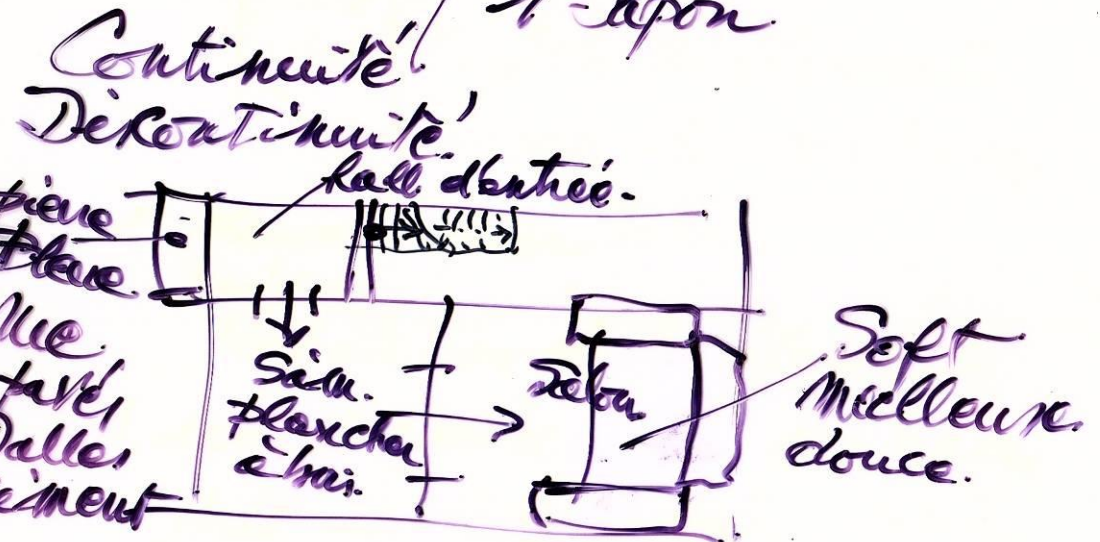 Japon
Continuité
Discontinuité
hall d'entrée.
pierre
bleue
rue.
pavés
Dalles
ciment
S.à.m.
plancher
Salon
Soft
moelleuse.
douce.